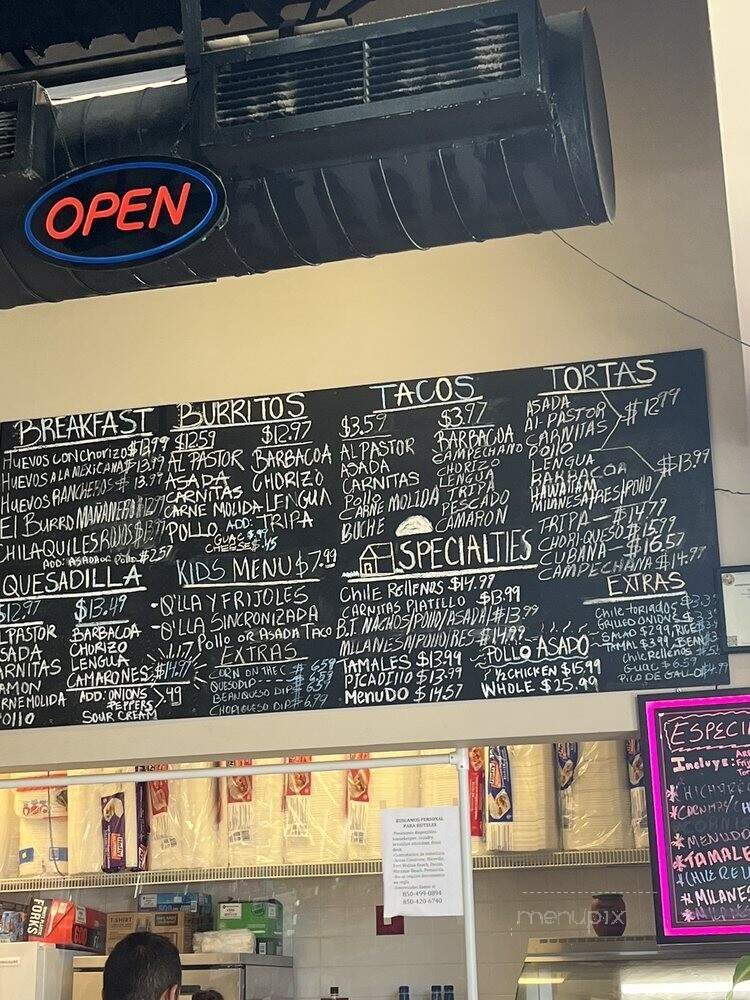 OPEN
BREAKFAST
HUEVOS CON CHORIZO $12.99
HUEVOS A LA MEXICANA $13.99
HUEVOS RANCHEROS $13.99
El BURRO MAÑANERO
CHILAQUILES
ADD: ASADA OR POllO $2.57
QUESADILLA
$12.97 $13.49
BARBACOA
CHORIZO
LENGUA
CAMARONES $14.77
ADD: ONIONS
PEPPERS
SOUR CREAM
.49
BURRITOS
$12.59 $12.97
AL PASTOR
ASADA
CARNITAS
CARNE MOLIDA
POLLO
BARBACOA
CHORIZO
LENGUA
TRIPA
ADD:
GUAC
CHEESE
KIDS MENU $7.99
Q'LLA Y FRIJOLES
Q'LLA SINCRONIZADA
Pollo OR ASADA Taco
EXTRAS
CORN ON THE C
QUESO DIP
BEAN QUESO DIP
CHORIQUESO DIP
TACOS
$3.59 $3.97
AL PASTOR
ASADA
CARNITAS
Pollo
CARNE MOLIDA
BUCHE
BARBACOA
CAMPECHANO
CHORIZO
LENGUA
TRIPA
PESCADO
CAMARON
SPECIALTIES
Chile Rellenos $14.99
CARNITAS PLATILLO $13.99
B.T. NACHOS/POllO/ASADA $13.99
MILANESA/POllO/RES $14.99
TAMALES $13.99
PICADIllO $13.99
MENUDO $14.57
POLLO ASADO
½ CHICKEN $15.99
WHOLE $25.99
TORTAS
ASADA
Al-PASTOR
CARNITAS
$12.99
Pollo
LENGUA
BARBACOA
HAWAIIAN
MILANESA/RES/POllO
$13.99
TRIPA $14.79
CHORI-QUESO $15.99
CUBANA $16.57
CAMPECHANA $14.97
EXTRAS
Chile-Toriados
GRILLED ONIONS
SALAD $2.99
TAMAL $3.99
Chile Rellenos
GUAC $6.59
PICO DE GALLO
ESPECI
Incluye:
MENUDO
TAMALE
CHILE REL
MILANES
BUSCAMOS PERSONAL
PARA HOTELES
850-499-0894
850-420-6740
FORKS
T-SHIRT
menupix